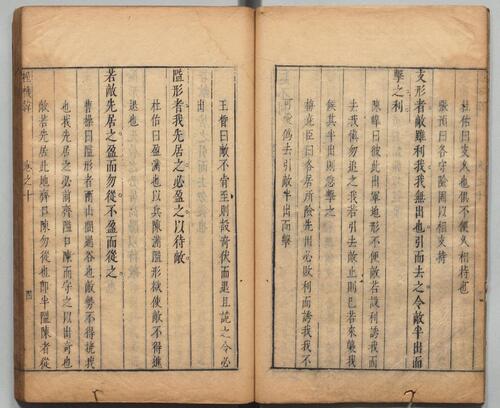 杜佑曰支久也俱不便久相持也
張預曰各守險固以相支持
支形者敵雖利我我無出也引而去之令敵半出而
擊之利
陳皡曰彼此出軍地形不便敵若設利誘我而
去我慎勿追之我若引去敵止則已若來襲我
候其半出則急擊之
梅堯臣曰各居所險先出必敗利而誘我我不
可愛偽去引敵半出而擊
王晳曰敵不肯至則設奇伏而退且詭之令必
出
隘形者我先居之必盈之以待敵
杜佑曰盈滿也以兵陳滿隘形欲使敵不得進
退也
若敵先居之盈而勿從不盈而從之
曹操曰隘形者兩山間通谷也敵勢不得撓我
也我先居之必前齊隘口陳而守之以出奇也
敵若先居此地齊口陳勿從也即半隘陳者從
卷之十
四